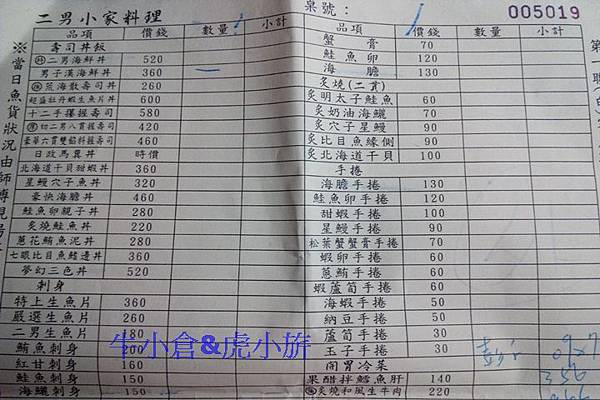 二男小家料理
桌號：
005019
品項 價錢 數量 小計
壽司丼飯
二男海鮮丼 520
男子漢海鮮丼 360
荒海散壽司丼 260
超盛牡丹蝦生魚片丼 600
十二手握握壽司 580
切二男八貫握壽司 420
豪華六貫雙餡料握壽司 460
日政馬糞丼 時價
北海道干貝甜蝦丼 360
星鰻穴子魚丼 320
豪快海膽丼 460
鮭魚卵親子丼 280
炙燒鮭魚丼 220
蔥花鮪魚泥丼 280
七眼比目魚鰭邊丼 360
夢幻三色丼 520
刺身
特上生魚片 360
嚴選生魚片 260
二男生魚片 180
鮪魚刺身 200
紅甘刺身 160
鮭魚刺身 150
海鱺刺身 150
品項 價錢 數量 小計
蟹膏 70
鮭魚卵 120
海膽 130
炙燒(二貫)
炙明太子鮭魚 60
炙奶油海鱺 70
炙穴子星鰻 90
炙比目魚緣側 90
炙北海道干貝 100
手捲
海膽手捲 130
鮭魚卵手捲 120
甜蝦手捲 100
星鰻手捲 90
松葉蟹蟹膏手捲 70
蝦卵手捲 60
蔥鮪手捲 60
蝦蘆筍手捲 60
海蝦手捲 50
納豆手捲 50
蘆筍手捲 30
玉子手捲 30
開胃冷菜
果醋拌鱈魚肝 140
炙燒和風生牛肉 220
※當日魚貨狀況由師傅視
第一聯
牛小倉&虎小旂
356